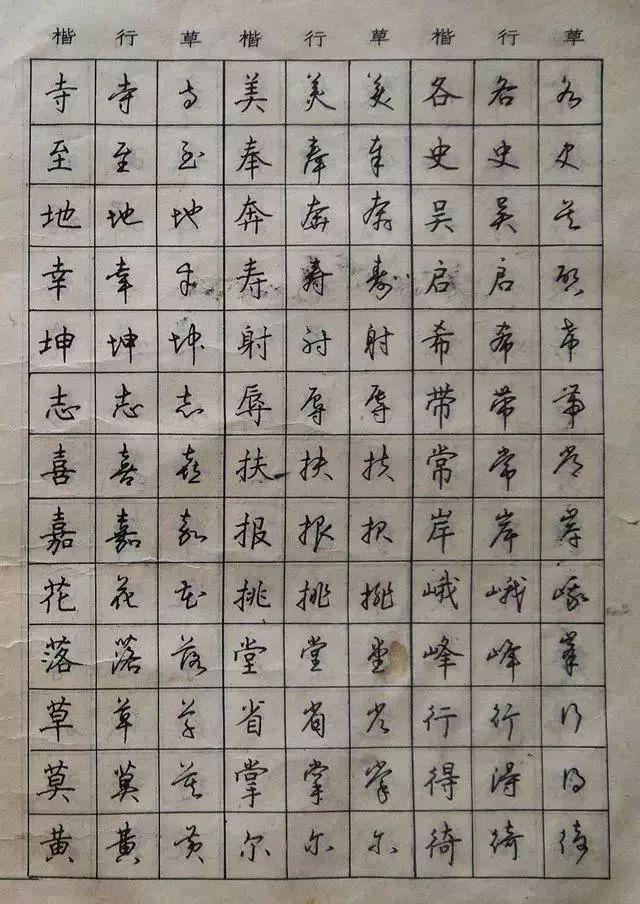 楷 行 草 楷 行 草 楷 行 草
寺 寺 寺 美 美 美 各 各 各
至 至 至 奉 奉 奉 史 史 史
地 地 地 奔 奔 奔 吴 吴 吴
幸 幸 幸 寿 寿 寿 启 启 启
坤 坤 坤 射 射 射 希 希 希
志 志 志 辱 辱 辱 带 带 带
喜 喜 喜 扶 扶 扶 常 常 常
嘉 嘉 嘉 报 报 报 岸 岸 岸
花 花 花 挑 挑 挑 峨 峨 峨
落 落 落 堂 堂 堂 峰 峰 峰
草 草 草 省 省 省 行 行 行
莫 莫 莫 掌 掌 掌 得 得 得
黄 黄 黄 尔 尔 尔 徛 徛 徛